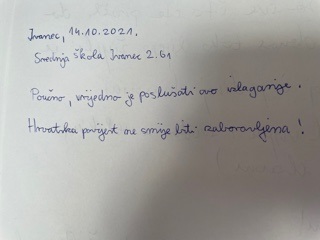 Ivanec, 14.10.2021.
Srednja škola Ivanec 2.G1
Poučno, vrijedno je poslušati ovo izlaganje.
Hrvatska povijest ne smije biti zaboravljena!